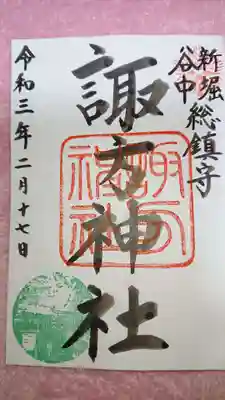 新堀
谷中 総鎮守
諏方神社
諏方神社
令和三年二月十七日